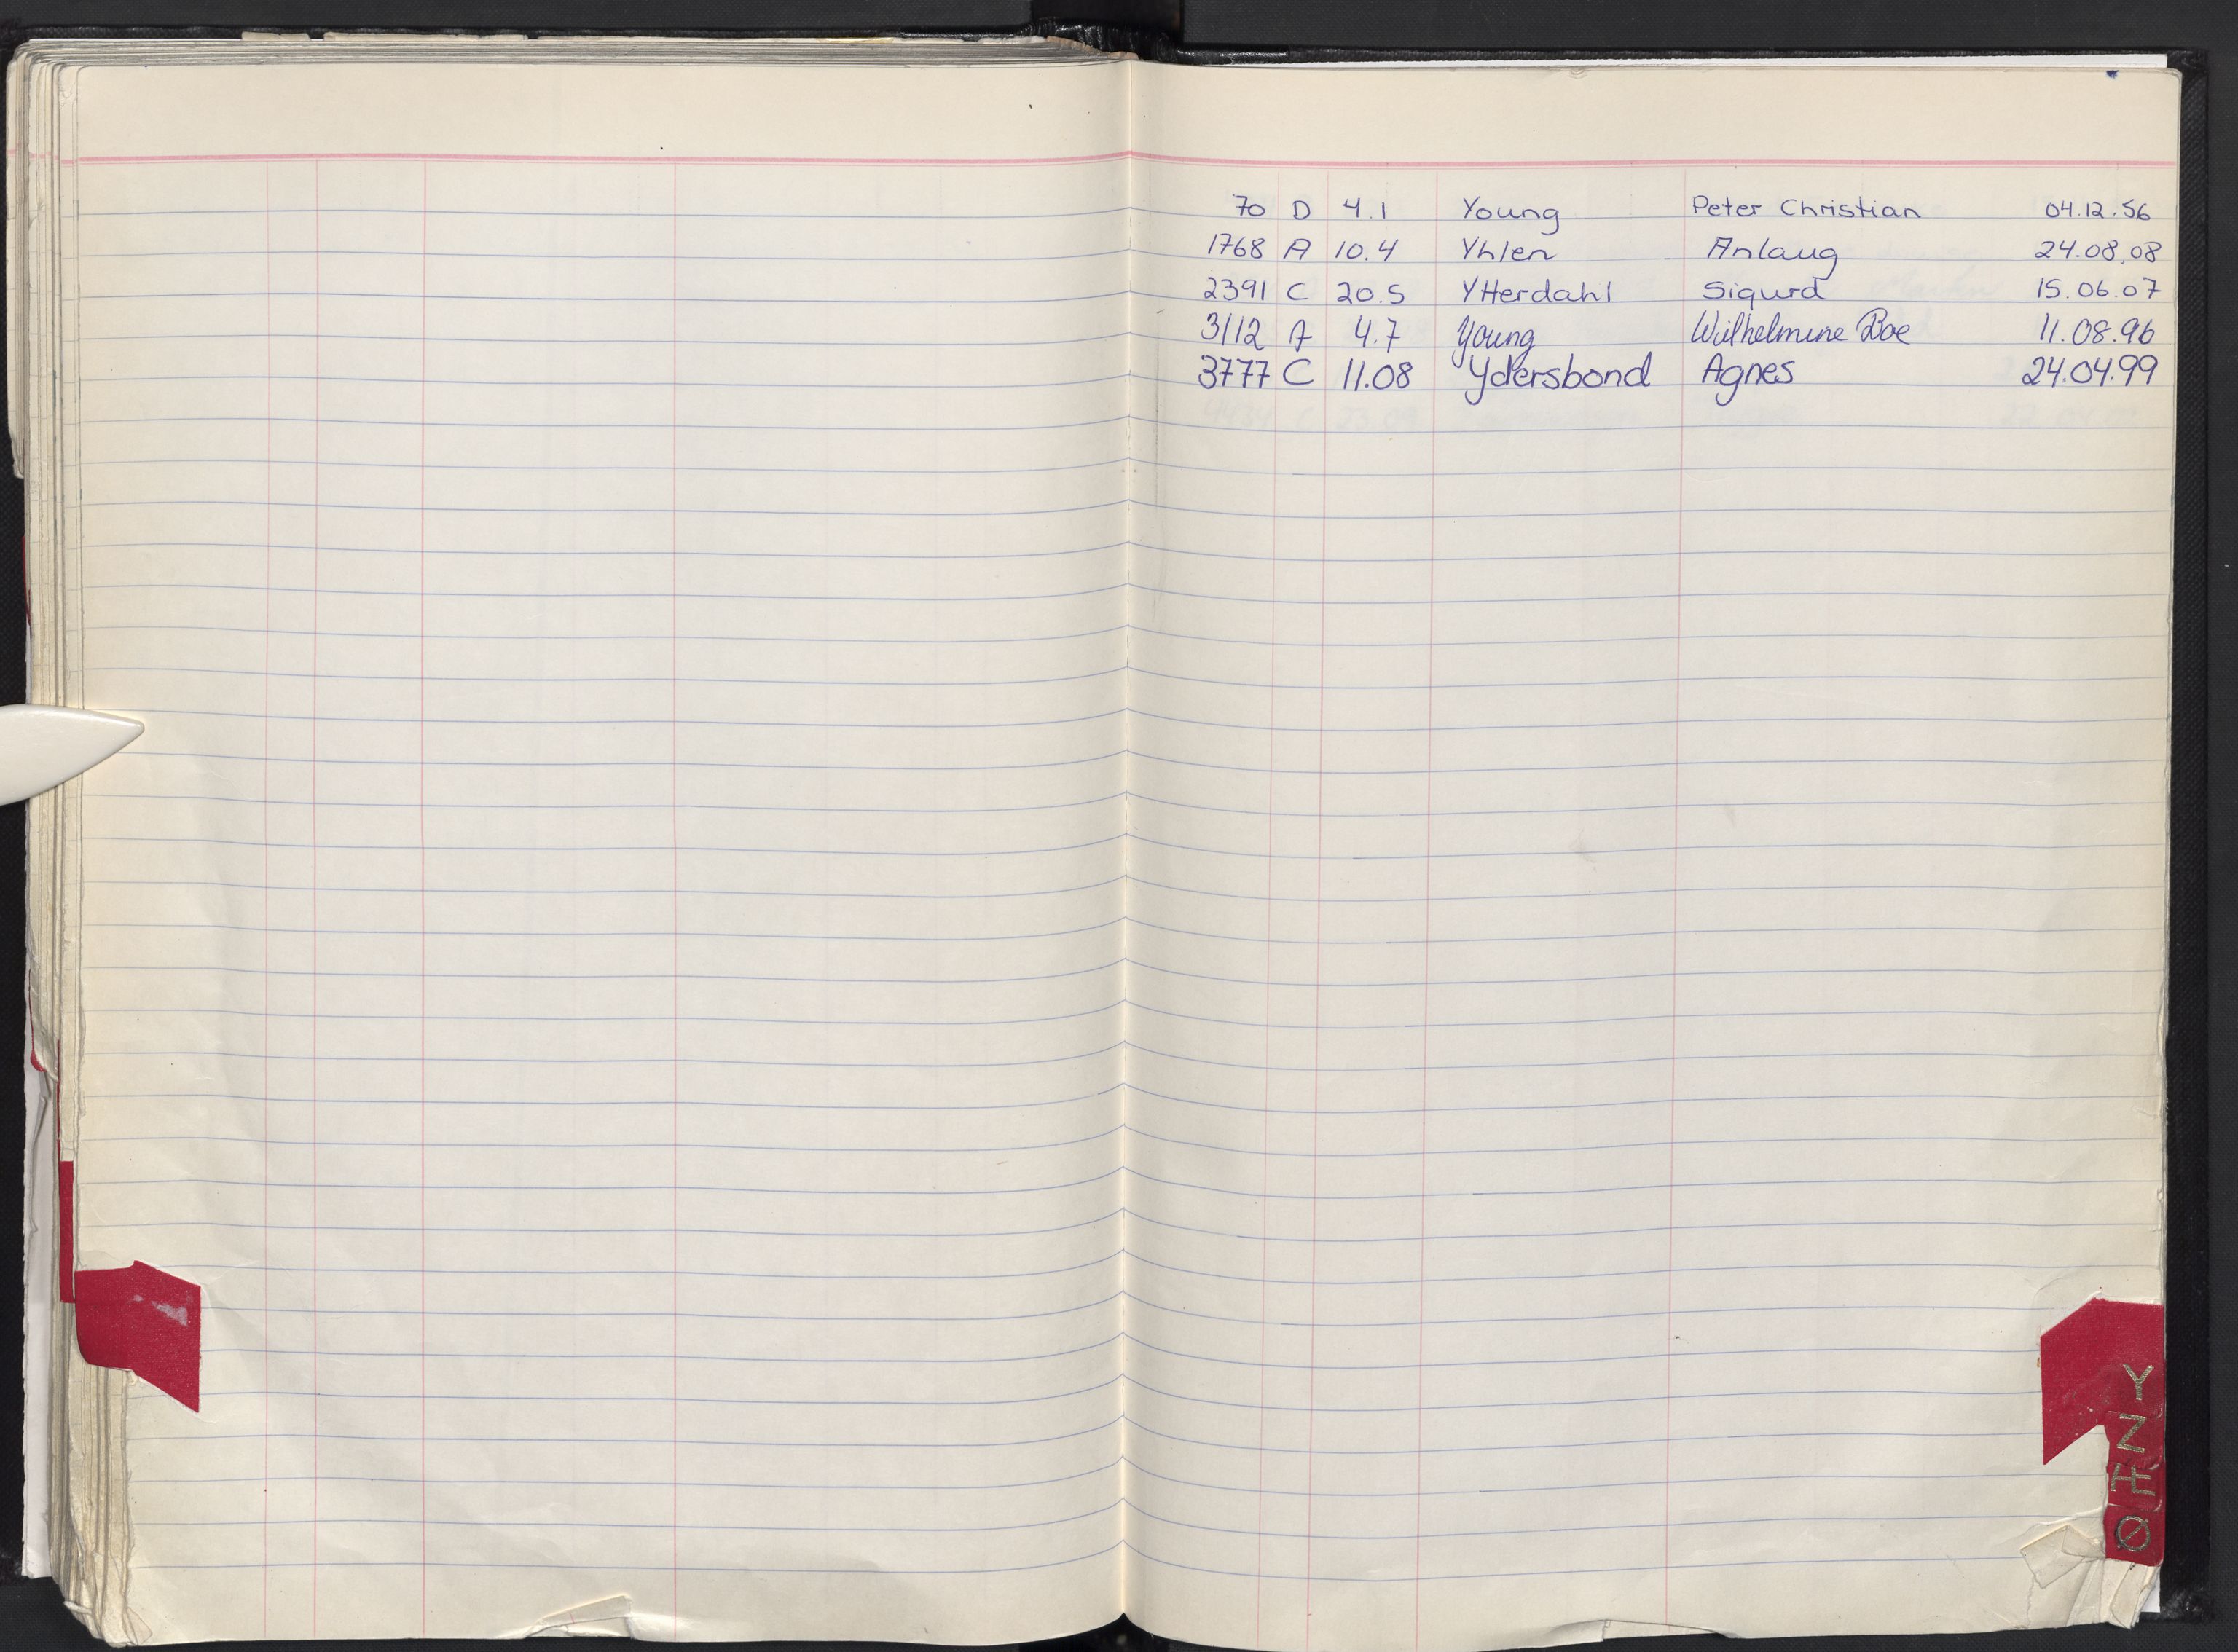 70 D 4.1 Young Peter Christian 04.12.56
1768 A 10.4 Yhlen Anlaug 24.08.08
2391 C 20.5 Ytterdahl Sigurd 15.06.07
3112 A 4.7 Young Wilhelmine Boe 11.08.96
3777 C 11.08 Ydersbond Agnes 24.04.99
Y
Z
Æ
Ø